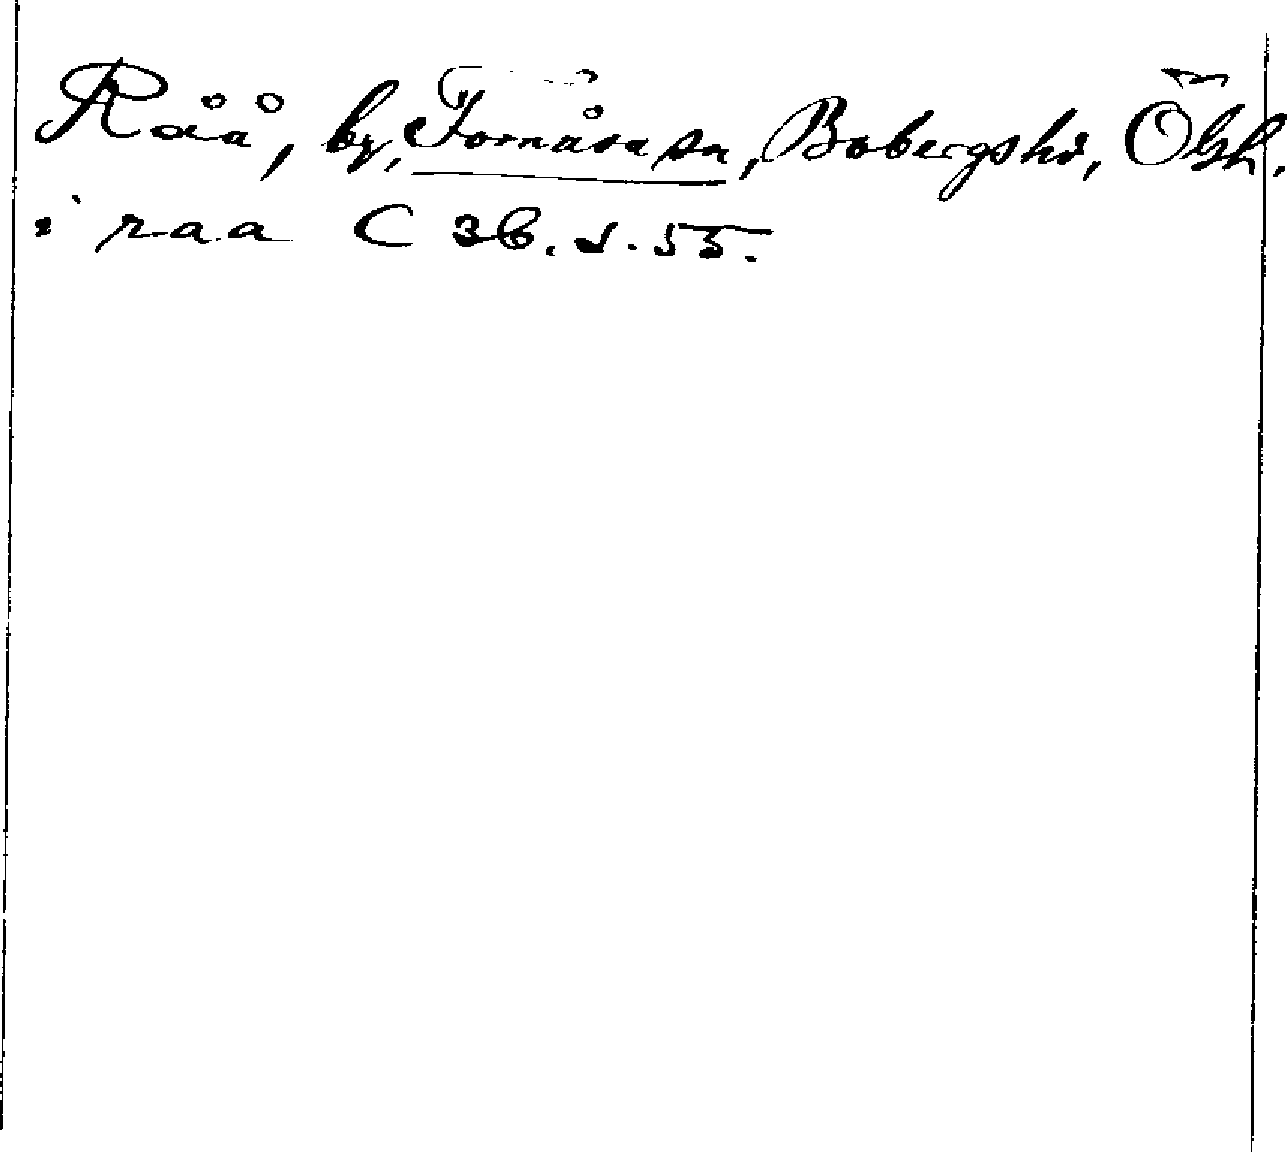 Råå, by, Fornåsa sn, Bobergs hd, Ögtl.
i raa C 36. s. 55.